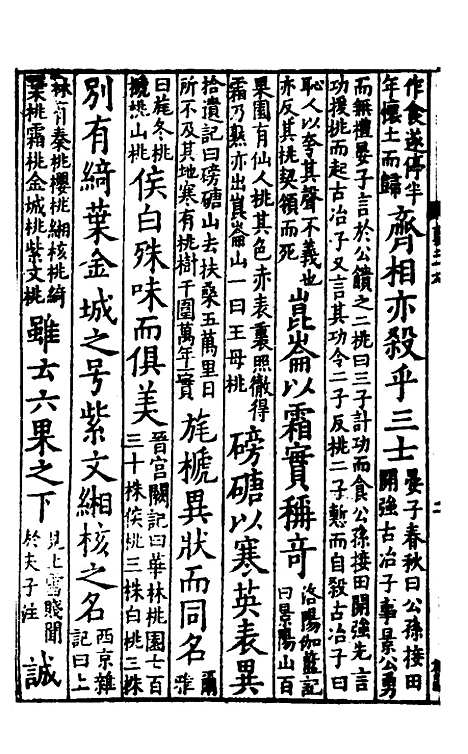 作食遂停半
年懷土而歸
齊相亦殺乎三士
晏子春秋曰公孫接田
開強古冶子事景公勇
而無禮晏子言於公饋之二桃曰三子計功而食公孫接田開強先言
功援桃而起古冶子又言其功令二子反桃二子慙而自殺古冶子曰
恥人以夸其聲不義也
亦反其桃契領而死
崑崙以霜實稱竒
洛陽伽藍記
曰景陽山百
果園有仙人桃其色赤表裏照徹得
霜乃熟亦出崑崙山一曰王母桃
磅磄以寒英表異
拾遺記曰磅磄山去扶桑五萬里日
所不及其地寒有桃樹千圍萬年一實
旄榹異狀而同名
爾
雅
曰旄冬桃
榹桃山桃
侯白殊味而俱美
晉宮闕記曰華林桃園七百
三十株侯桃三株白桃三株
別有綺葉金城之号紫文緗核之名
西京雜
記曰上
林有秦桃櫻桃緗核桃綺
葉桃霜桃金城桃紫文桃
雖云六果之下
見上雪賤聞
於夫子注
誠